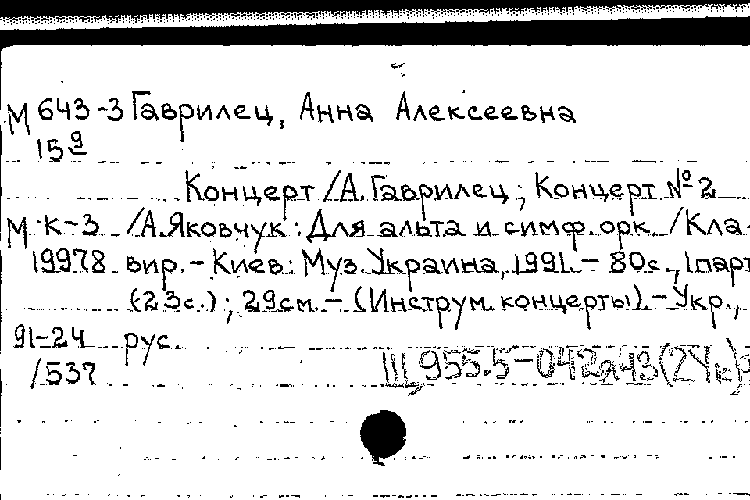 М 643-3 Гаврилец, Анна Алексеевна
15 9
Концерт /А. Гаврилец; Концерт № 2
М К-3 /А. Яковчук: Для альта и симф. орк. /Кла-
19978 вир. - Киев: Муз. Украина, 1991. - 80с., 1парт
(23с.); 29см. - (Инструм. концерты). - Укр.,
91-24 рус.
/537
Щ 955.5-042я43(2Ук)